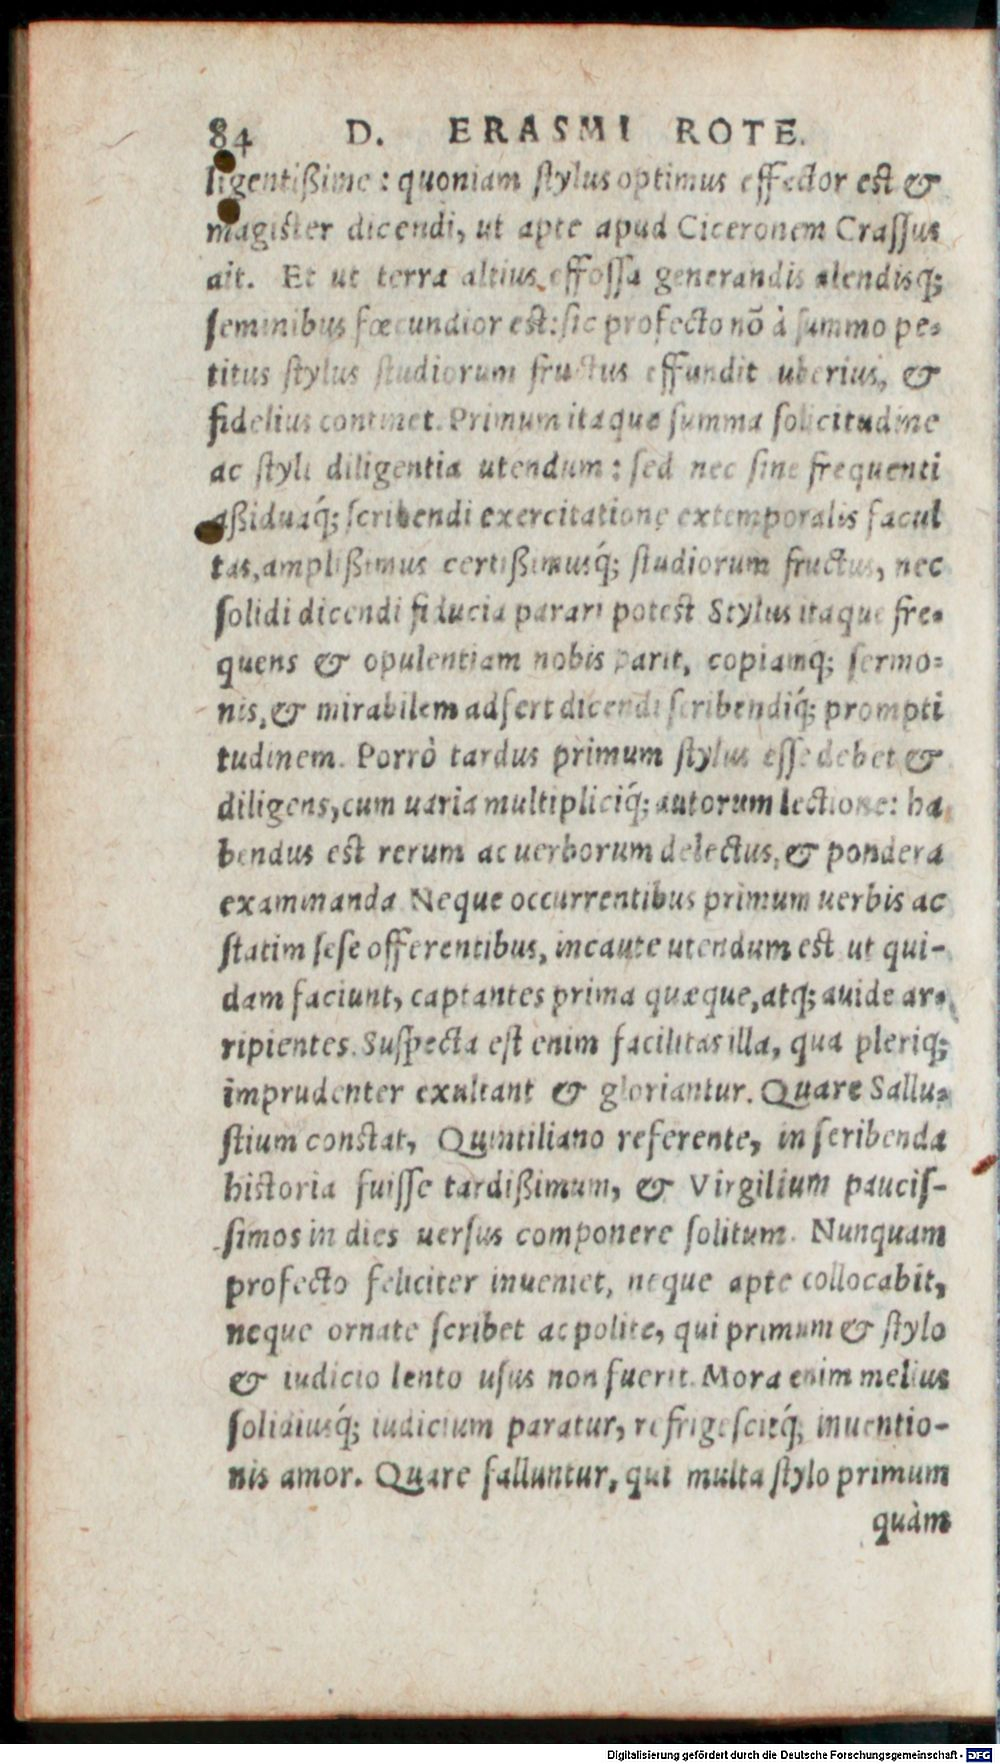 84 D. ERASMI ROTE.
ligentißime: quoniam stylus optimus effector est &
magister dicendi, ut apte apud Ciceronem Crassus
ait. Et ut terra altius effossa generandis alendisq;
seminibus fœcundior est: sic profecto nõ à summo pe-
titus stylus studiorum fructus effundit uberius, &
fidelius continet. Primum itaque summa solicitudine
ac styli diligentia utendum: sed nec sine frequenti
aßiduaq́; scribendi exercitatione extemporalis facul
tas, amplißimus certißimusq́; studiorum fructus, nec
solidi dicendi fiducia parari potest Stylus itaque fre-
quens & opulentiam nobis parit, copiamq; sermo-
nis, & mirabilem adfert dicendi scribendiq́; prompti
tudinem. Porrò tardus primum stylus esse debet &
diligens, cum uaria multipliciq́; autorum lectione: ha
bendus est rerum ac uerborum delectus, & pondera
examinanda Neque occurrentibus primum uerbis ac
statim sese offerentibus, incaute utendum est ut qui-
dam faciunt, captantes prima quæque, atq; auide ar-
ripientes. Suspecta est enim facilitas illa, qua pleriq;
imprudenter exultant & gloriantur. Quare Sallu-
stium constat, Quintiliano referente, in scribenda
historia fuisse tardißimum, & Virgilium paucis-
simos in dies uersus componere solitum. Nunquam
profecto feliciter inueniet, neque apte collocabit,
neque ornate scribet ac polite, qui primum & stylo
& iudicio lento usus non fuerit. Mora enim melius
solidiusq́; iudicium paratur, refrigescitq́; inuentio-
nis amor. Quare falluntur, qui multa stylo primum
quàm
Digitalisierung gefördert durch die Deutsche Forschungsgemeinschaft - DFG